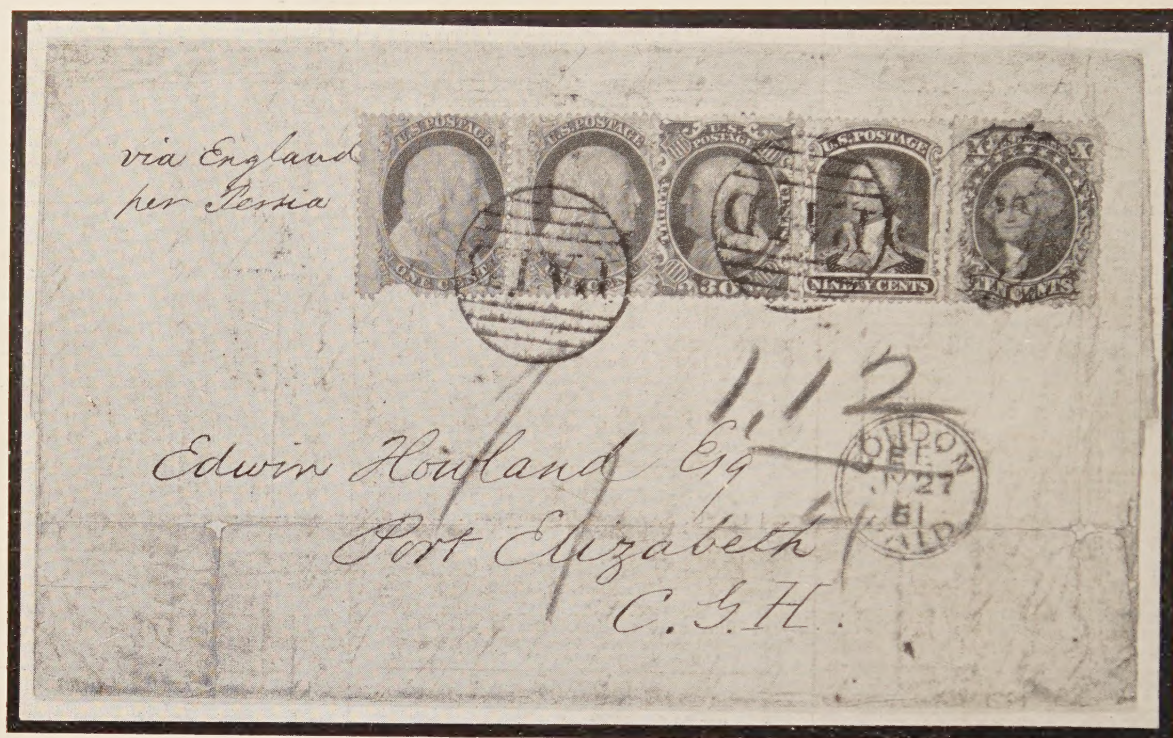 via England
per Persia
U.S. POSTAGE
ONE CENT
U.S. POSTAGE
U.S.
POSTAGE
30
U.S. POSTAGE
NINETY CENTS
X
TEN CENTS
PAID
1.12
LONDON
JY 27
61
PAID
Edwin Howland Esq
Port Elizabeth
C. G. H.